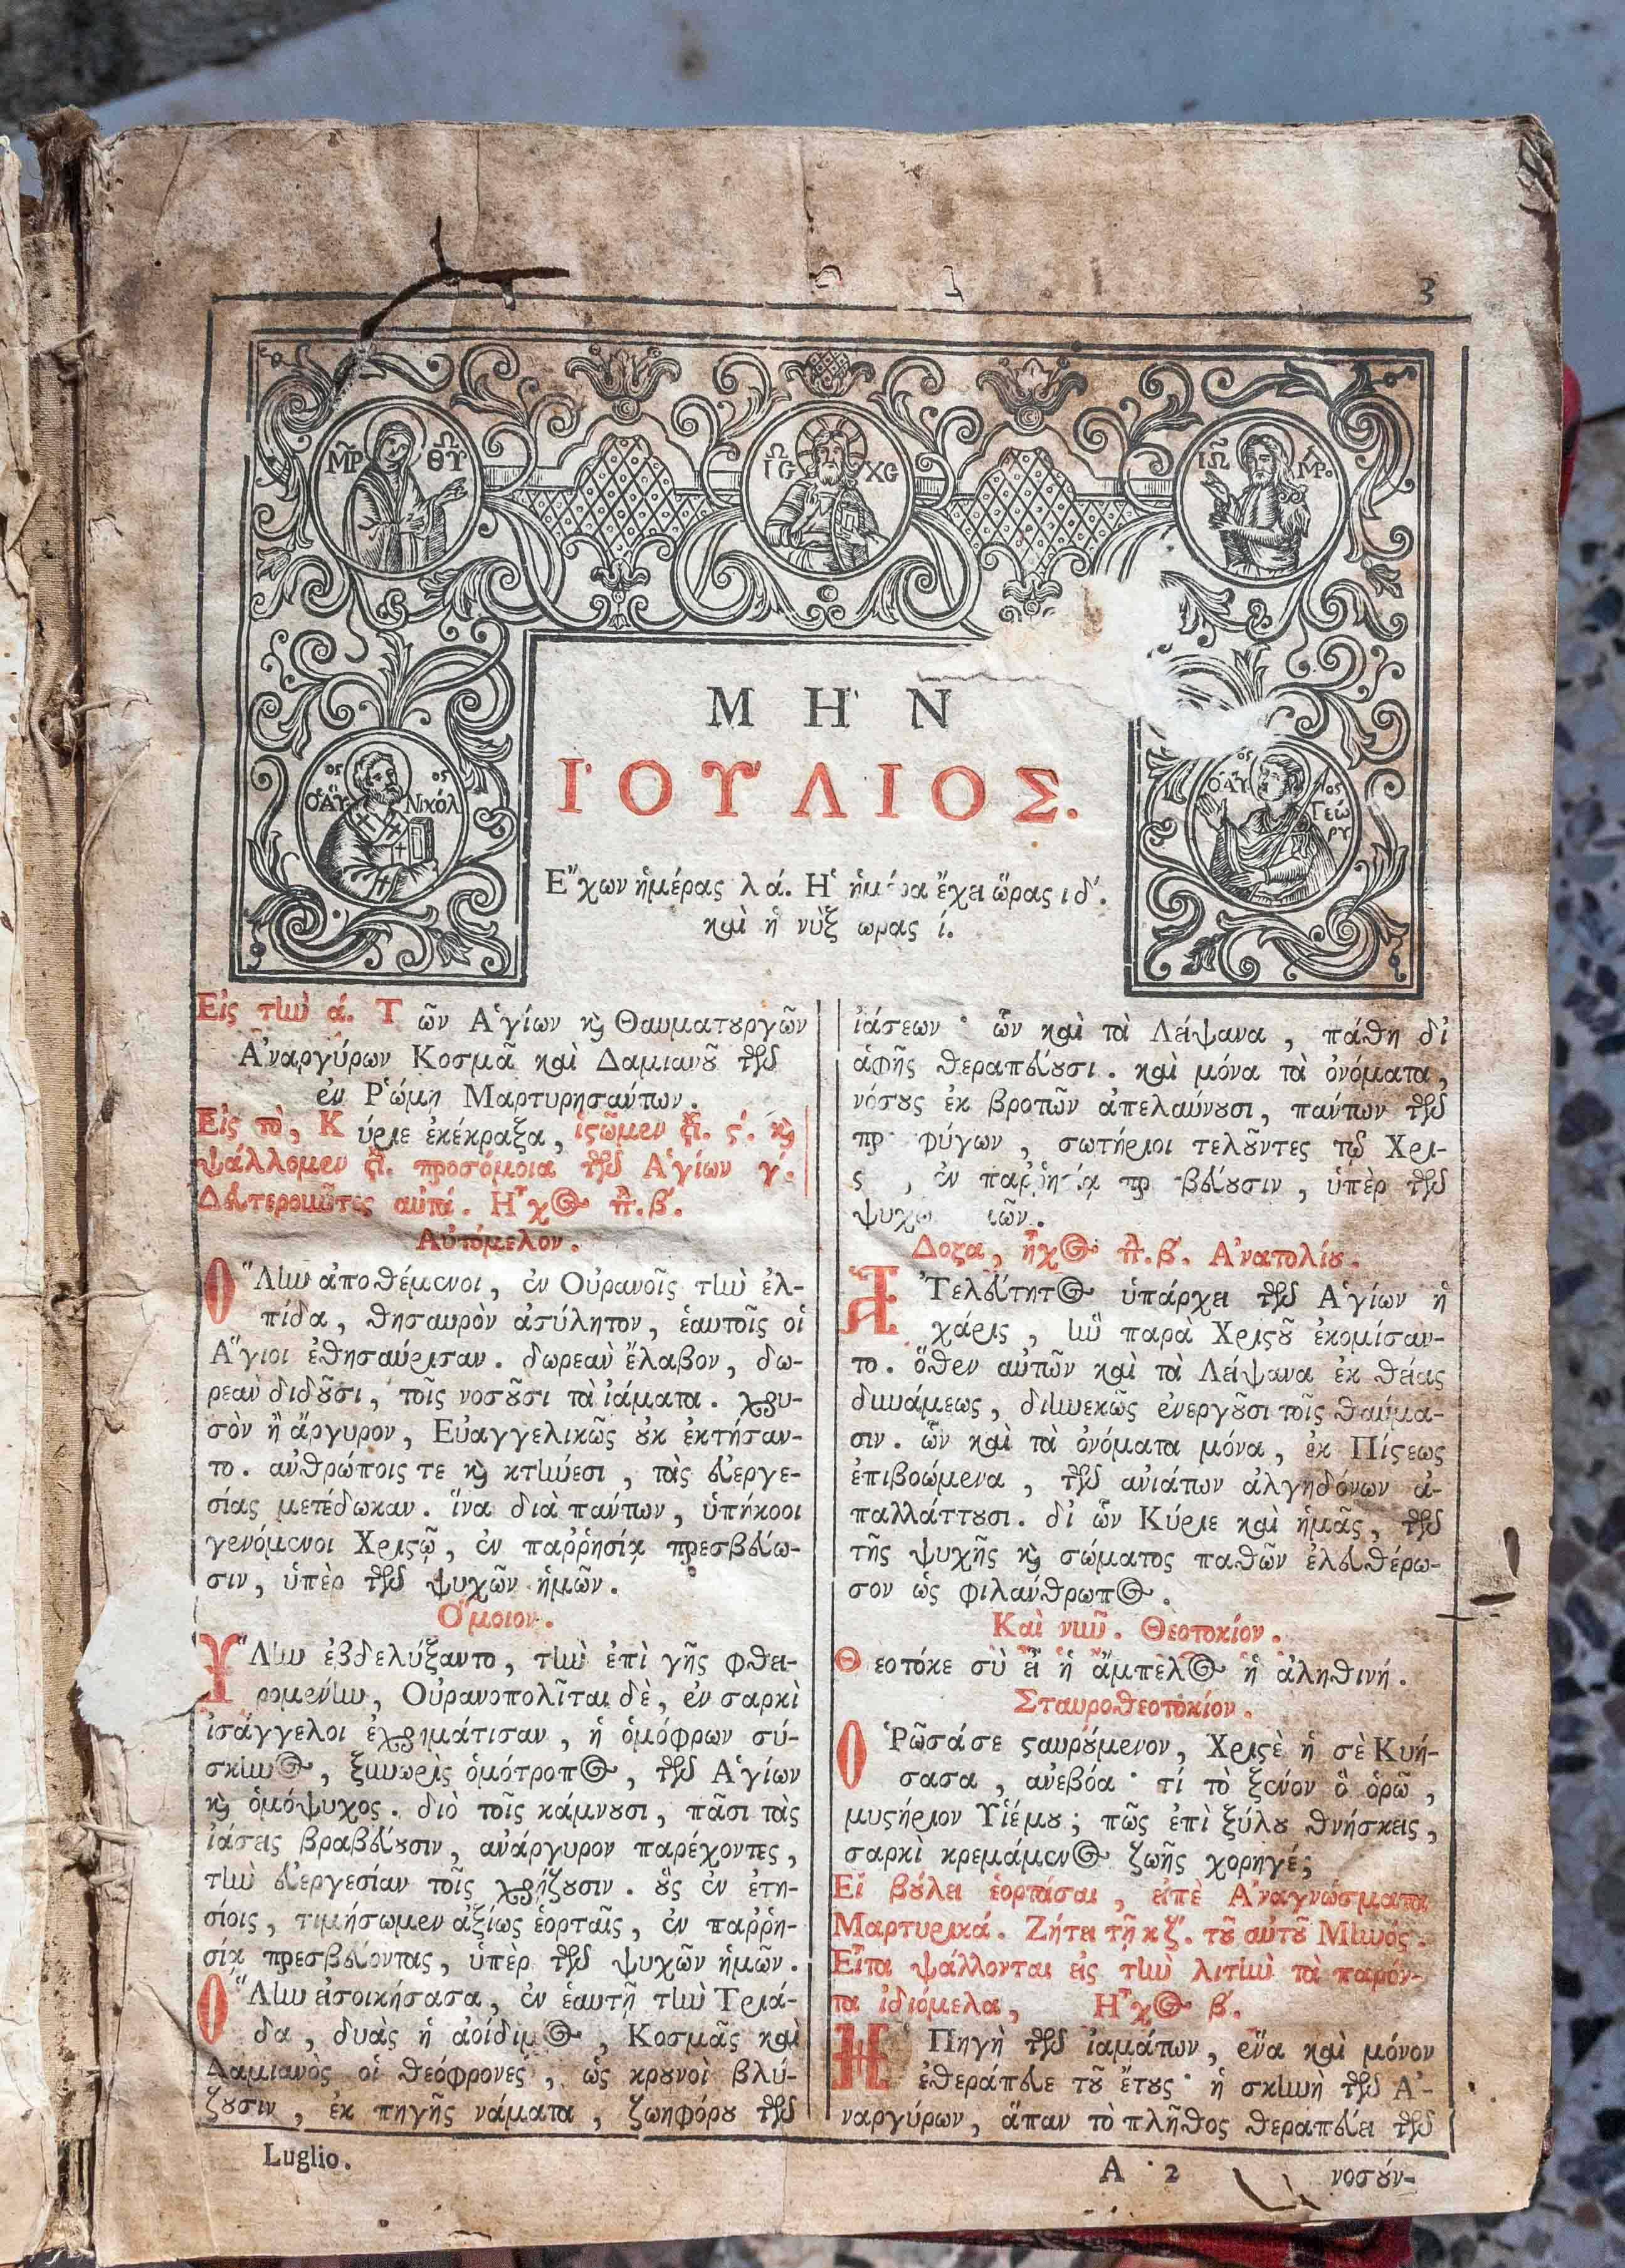 3
ΜΡ ΘΥ
ΙC ΧC
ΙΩ
ΜΗ'Ν
Ι'ΟΥ'ΛΙΟΣ.
Ὁ ἍΓ Νικόλ
ος ος
Ὁ ἍΓ ος
Γεώ
ργ
Ἔχων ἡμέρας λά. Ἡ ἡμέρα ἔχει ὥρας ιδ'.
καὶ ἡ νὺξ ωρας ί.
Εἰς τὴν ά. Τῶν Ἁγίων καὶ Θαυματουργῶν
Ἀναργύρων Κοσμᾶ καὶ Δαμιανοῦ τῶν
ἐν Ῥώμῃ Μαρτυρησάντων.
Εἰς τὸ, Κύριε ἐκέκραξα, ἱστῶμεν στί. ς'. καὶ
ψάλλομεν στί. προσόμοια τῶν Ἁγίων γ'.
Δευτεροῦντες αὐτά. Ἦχος πλ. β'.
Αὐτόμελον.
Ὅλην ἀποθέμενοι, ἐν Οὐρανοῖς τὴν ἐλ-
πίδα, θησαυρὸν ἀσύλητον, ἑαυτοῖς οἱ
Ἅγιοι ἐθησαύρισαν. δωρεὰν ἔλαβον, δω-
ρεὰν διδοῦσι, τοῖς νοσοῦσι τὰ ἰάματα. χρυ-
σὸν ἢ ἄργυρον, Εὐαγγελικῶς οὐκ ἐκτήσαν-
το. ἀνθρώποις τε καὶ κτήνεσι, τὰς εὐεργε-
σίας μετέδωκαν. ἵνα διὰ πάντων, ὑπήκοοι
γενόμενοι Χριστῷ, ἐν παῤῥησίᾳ πρεσβεύω-
σιν, ὑπὲρ τῶν ψυχῶν ἡμῶν.
Ὅμοιον.
Ὕλην ἐβδελύξαντο, τὴν ἐπὶ γῆς φθει-
ρομένην, Οὐρανοπολῖται δὲ, ἐν σαρκὶ
ἰσάγγελοι ἐχρημάτισαν, ἡ ὁμόφρων σύ-
σκηνος, ξυνωρὶς ὁμότροπος, τῶν Ἁγίων
καὶ ὁμόψυχος. διὸ τοῖς κάμνουσι, πᾶσι τὰς
ἰάσεις βραβεύουσιν, ἀνάργυρον παρέχοντες,
τὴν εὐεργεσίαν τοῖς χρῄζουσιν. οὓς ἐν ἐτη-
σίοις, τιμήσωμεν ἀξίως ἑορταῖς, ἐν παῤῥη-
σίᾳ πρεσβεύοντας, ὑπὲρ τῶν ψυχῶν ἡμῶν.
Ὅλην εἰσοικήσασα, ἐν ἑαυτῇ τὴν Τριά-
δα, δυὰς ἡ ἀοίδιμος, Κοσμᾶς καὶ
Δαμιανὸς οἱ θεόφρονες, ὡς κρουνοὶ βλύ-
ζουσιν, ἐκ πηγῆς νάματα, ζωηφόρου τῶν
Luglio.
ἰάσεων· ὧν καὶ τὰ Λείψανα, πάθη δι'
ἁφῆς θεραπεύουσι. καὶ μόνα τὰ ὀνόματα,
νόσους ἐκ βροτῶν ἀπελαύνουσι, πάντων τῶν
φύγων, σωτήριοι τελοῦντες τῷ Χρι-
ἐν παῤῥησίᾳ πρ βεύουσιν, ὑπὲρ τῶν
ψυχῶ
Δοξα, ἦχος πλ. β'. Ἀνατολίου.
Ἀτελεύτητος ὑπάρχει τῶν Ἁγίων ἡ
χάρις, ἣν παρὰ Χριστοῦ ἐκομίσαν-
το. ὅθεν αὐτῶν καὶ τὰ Λείψανα ἐκ θείας
δυνάμεως, διηνεκῶς ἐνεργοῦσι τοῖς θαύμα-
σιν. ὧν καὶ τὰ ὀνόματα μόνα, ἐκ Πίστεως
ἐπιβοώμενα, τῶν ἀνιάτων ἀλγηδόνων ἀ-
παλλάττουσι. δι' ὧν Κύριε καὶ ἡμᾶς, τῶν
τῆς ψυχῆς καὶ σώματος παθῶν ἐλευθέρω-
σον ὡς φιλάνθρωπος.
Καὶ νῦν. Θεοτοκίον.
Θεοτόκε σὺ εἶ ἡ ἄμπελος ἡ ἀληθινή.
Σταυροθεοτοκίον.
Ὁρῶσά σε σταυρούμενον, Χριστὲ ἡ σὲ Κυή-
σασα, ἀνεβόα· τί τὸ ξένον ὃ ὁρῶ,
μυστήριον Υἱέ μου; πῶς ἐπὶ ξύλου θνήσκεις,
σαρκὶ κρεμάμενος ζωῆς χορηγέ;
Εἰ βούλει ἑορτάσαι, εἰπὲ Ἀναγνώσματα
Μαρτυρικά. Ζήτει τῇ κζ'. τοῦ αὐτοῦ Μηνός.
Εἶτα ψάλλονται εἰς τὴν λιτὴν τὰ παρόν-
τα ἰδιόμελα, Ἦχος β'.
Ἡ Πηγὴ τῶν ἰαμάτων, ἕνα καὶ μόνον
ἐθεράπευε τοῦ ἔτους· ἡ σκηνὴ τῶν Ἀ-
ναργύρων, ἅπαν τὸ πλῆθος θεραπεύει τῶν
Α 2
νοσούν-